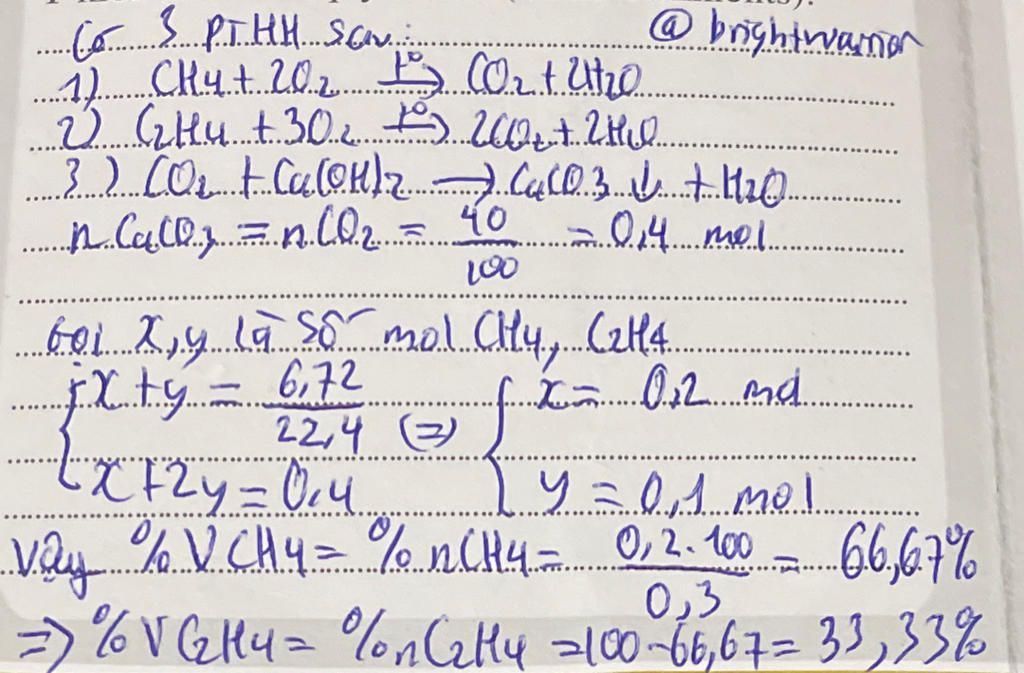 Có 3 PTHH sau: @brightwarrior
1) CH4 + 2O2 —t°→ CO2 + 2H2O
2) C2H4 + 3O2 —t°→ 2CO2 + 2H2O
3) CO2 + Ca(OH)2 → CaCO3 ↓ + H2O
nCaCO3 = nCO2 = 40/100 = 0,4 mol
Gọi x, y là số mol CH4, C2H4
{ x + y = 6,72/22,4 (=) { x = 0,2 mol
x + 2y = 0,4 y = 0,1 mol
Vậy %VCH4 = %nCH4 = 0,2.100/0,3 = 66,67%
=> %VC2H4 = %nC2H4 = 100-66,67 = 33,33%